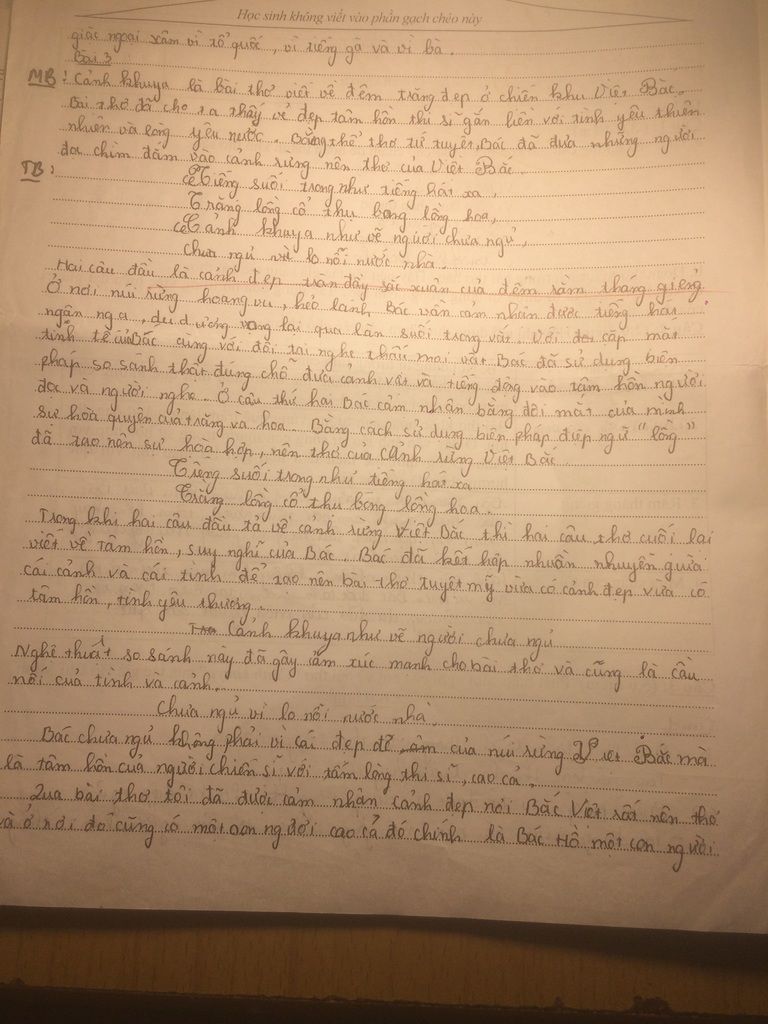 Học sinh không viết vào phần gạch chéo này
giặc ngoại xâm vì tổ quốc, vì tiếng gà và vì bà.
Bài 3
MB: Cảnh khuya là bài thơ viết về đêm trăng đẹp ở chiến khu Việt Bắc.
Bài thơ đã cho ta thấy vẻ đẹp tâm hồn thi sĩ gắn liền với tình yêu thiên
nhiên và lòng yêu nước. Bằng thể thơ tứ tuyệt, Bác đã đưa những người
đọc chìm đắm vào cảnh rừng nên thơ của Việt Bắc.
TB:
Tiếng suối trong như tiếng hát xa,
Trăng lồng cổ thụ bóng lồng hoa,
Cảnh khuya như vẽ người chưa ngủ,
Chưa ngủ vì lo nỗi nước nhà.
Hai câu đầu là cảnh đẹp tràn đầy sắc xuân của đêm rằm tháng giêng.
Ở nơi núi rừng hoang vu, hẻo lánh Bác vẫn cảm nhận được tiếng hát
ngân nga, du dương vọng lại qua làn suối trong vắt. Với cặp mắt
tinh tế của Bác cùng với đôi tai nghe thấu mọi vật Bác đã sử dụng biện
pháp so sánh thật đúng chỗ đưa cảnh vật và tiếng động vào tâm hồn người
đọc và người nghe. Ở câu thứ hai Bác cảm nhận bằng đôi mắt của mình
sự hoà quyện của trăng và hoa. Bằng cách sử dụng biện pháp điệp ngữ "lồng"
đã tạo nên sự hoà hợp, nên thơ của cảnh rừng Việt Bắc.
Tiếng suối trong như tiếng hát xa
Trăng lồng cổ thụ bóng lồng hoa.
Trong khi hai câu đầu tả về cảnh rừng Việt Bắc thì hai câu thơ cuối lại
viết về tâm hồn, suy nghĩ của Bác. Bác đã kết hợp nhuần nhuyễn giữa
cái cảnh và cái tình để tạo nên bài thơ tuyệt mỹ vừa có cảnh đẹp vừa có
tâm hồn, tình yêu thương.
Cảnh khuya như vẽ người chưa ngủ
Nghệ thuật so sánh này đã gây cảm xúc mạnh cho bài thơ và cũng là cầu
nối của tình và cảnh.
Chưa ngủ vì lo nỗi nước nhà.
Bác chưa ngủ không phải vì cái đẹp của núi rừng Việt Bắc mà
là tâm hồn của người chiến sĩ với tấm lòng thi sĩ, cao cả.
Qua bài thơ tôi đã được cảm nhận cảnh đẹp nơi Bắc Việt rất nên thơ
và ở nơi đó cũng có một con người cao cả đó chính là Bác Hồ một con người